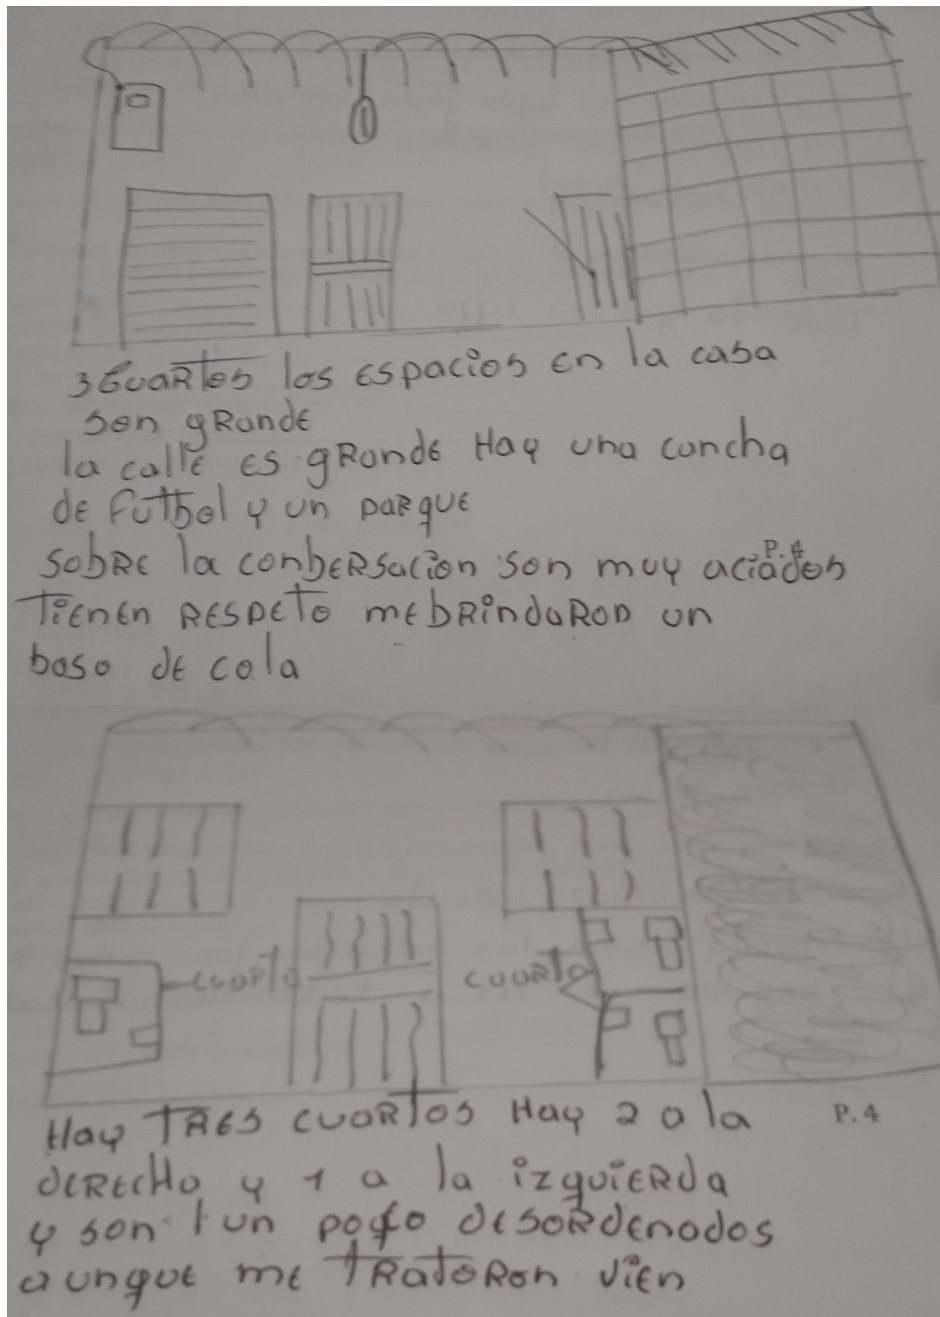 3 cuaRtos los Espacios En la casa
son gRande
la calle Es gRande Hay una cancha
de futbol y un parque
P.4
sobRE la conbERsacion son muy aciados
TiEnEn RESpETo mEbRindaRon un
baso de cola
cuarto
cuarto
Hay TRES cuaRtos Hay 2 a la
P.4
dERECHO y 1 a la izquiERda
y son un poco dESoRdEnados
aunque me tRataRon vien